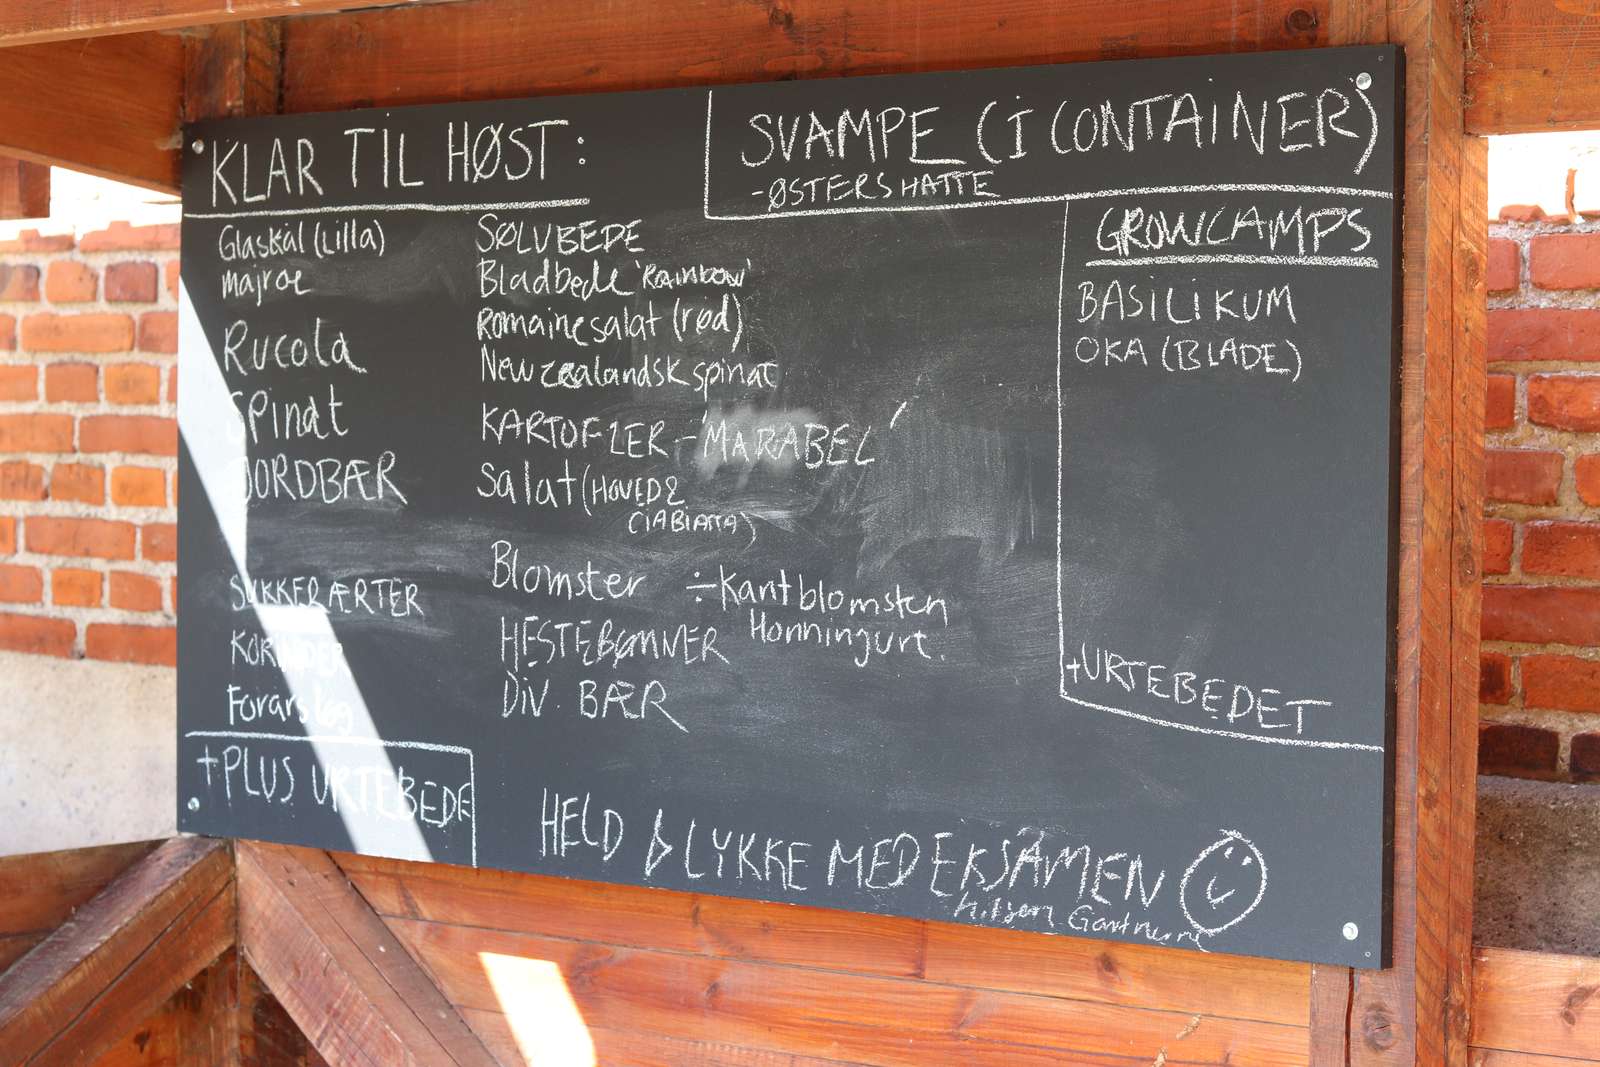 KLAR TIL HØST:
Glaskål (Lilla)
majroe
Rucola
Spinat
JORDBÆR
SUKKERÆRTER
KORIANDER
Forårsløg
+PLUS URTEBEDE
SØLVBEDE
Bladbede 'Rainbow'
Romainesalat (rød)
Newzealandsk spinat
KARTOFLER - 'MARABEL'
Salat (HOVED &
CIABIATTA)
Blomster ÷ Kantblomsten
Honningurt.
HESTEBØNNER
DIV. BÆR
SVAMPE (i CONTAINER)
-ØSTERSHATTE
GROWCAMPS
BASILIKUM
OKA (BLADE)
+URTEBEDET
HELD & LYKKE MED EKSAMEN
hilsen Gartnerne